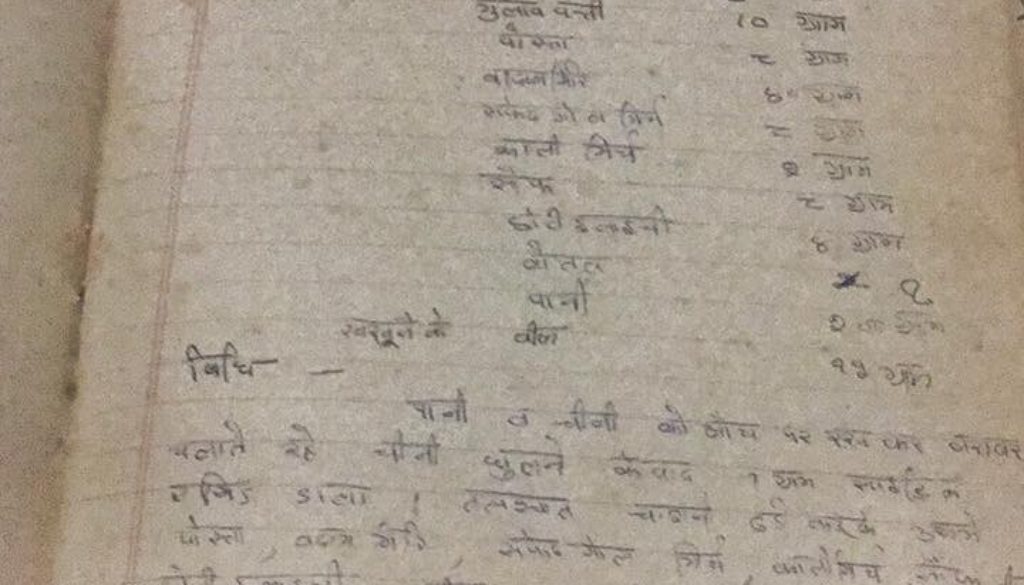 गुलाब पत्ती १० ग्राम
पोस्ता ८ ग्राम
बादामगिरि ४० ग्राम
सफेद गोल मिर्च ८ ग्राम
काली मिर्च २ ग्राम
सौफ ८ ग्राम
छोटी इलाइची ४ ग्राम
बोतल १
पानी ग्राम
खरबूजे के बीज १५ ग्राम
विधि —
पानी व चीनी को आँच पर रख कर बराबर
चलाते रहे चीनी घुलने के बाद १ ग्राम साइट्रिक
एसिड डाला । तत्पश्चात ठंडी करके उसमे
पोस्ता , बादाम गिरि सफेद गोल मिर्च , काली मिर्च